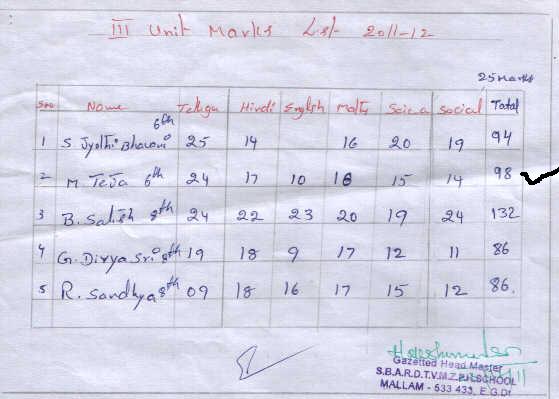 III Unit Marks List 2011-12
25 marks
Sno Name Telugu Hindi English Maths Science Social Total
1 S. Jyothi Bhavani 6th 25 14 16 20 19 94
2 M. Teja 6th 24 17 10 18 15 14 98
3 B. Satish 8th 24 22 23 20 19 24 132
4 G. Divya Sri 8th 19 18 9 17 12 11 86
5 R. Sandhya 8th 09 18 16 17 15 12 86.
Gazetted Head Master
S.B.A.R.D.T.V.M.Z.P.H.SCHOOL
MALLAM - 533 433, E.G.Dt